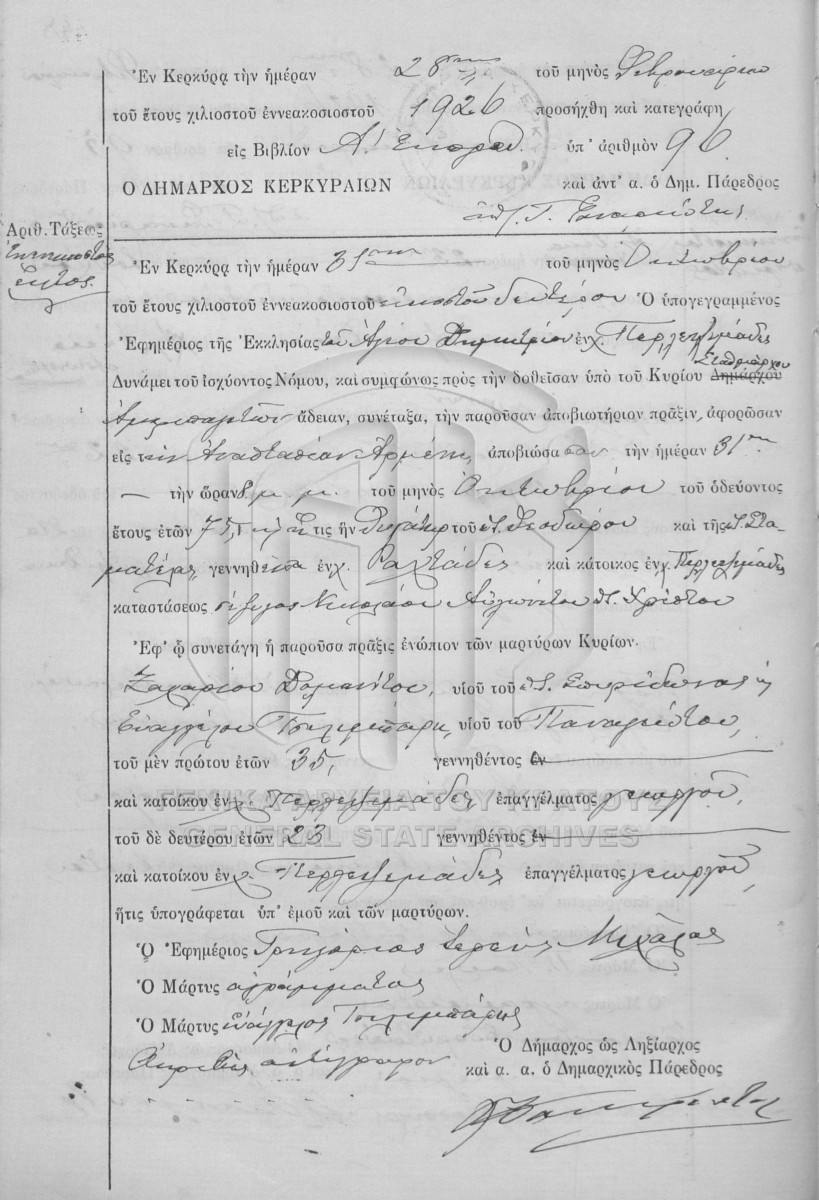 Ἐν Κερκύρᾳ τὴν ἡμέραν 28ην τοῦ μηνὸς Φεβρουαρίου
τοῦ ἔτους χιλιοστοῦ ἐννεακοσιοστοῦ 1926 προσήχθη καὶ κατεγράφη
εἰς Βιβλίον Α' ὑπ' ἀριθμὸν 96
Ο ΔΗΜΑΡΧΟΣ ΚΕΡΚΥΡΑΙΩΝ καὶ ἀντ' α. ὁ Δημ. Πάρεδρος
Γ.
Ἀριθ. Τάξεως
ἐνενηκοστὸς
ἕκτος.
Ἐν Κερκύρᾳ τὴν ἡμέραν 31ην τοῦ μηνὸς Ὀκτωβρίου
τοῦ ἔτους χιλιοστοῦ ἐννεακοσιοστοῦ εἰκοστοῦ δευτέρου Ὁ ὑπογεγραμμένος
Ἐφημέριος τῆς Ἐκκλησίας τοῦ Ἁγίου Δημητρίου ἐν χ. Περλεψιμάδες
Σταθμάρχου
Δυνάμει τοῦ ἰσχύοντος Νόμου, καὶ συμφώνως πρὸς τὴν δοθεῖσαν ὑπὸ τοῦ Κυρίου Δημάρχου
ἄδειαν, συνέταξα, τὴν παροῦσαν ἀποβιωτήριον πρᾶξιν, ἀφορῶσαν
εἰς τὴν Ἀναστασίαν Ἀρμένη, ἀποβιώσασαν τὴν ἡμέραν 31ην
τὴν ὥραν 8 μ. μ. τοῦ μηνὸς Ὀκτωβρίου τοῦ ὁδεύοντος
ἔτους ἐτῶν 75, τις ἦν θυγάτηρ τοῦ π. Θεοδώρου καὶ τῆς π. Στα-
ματέλας, γεννηθεῖσα ἐν χ. Ραχτάδες καὶ κάτοικος ἐν χ. Περλεψιμάδες
καταστάσεως σύζυγος Νικολάου Αὐλωνίτου π. Χρίστου
Ἐφ' ᾧ συνετάγη ἡ παροῦσα πρᾶξις ἐνώπιον τῶν μαρτύρων Κυρίων.
Ζαχαρίου υἱοῦ τοῦ π. Σπυρίδωνος
Εὐαγγέλου Τσιλιμπάρη, υἱοῦ τοῦ Παναγιώτου,
τοῦ μὲν πρώτου ἐτῶν 35, γεννηθέντος ἐν
καὶ κατοίκου ἐν χ. Περλεψιμάδες ἐπαγγέλματος γεωργοῦ,
ΓΕΝΙΚΑ ΑΡΧΕΙΑ ΤΟΥ ΚΡΑΤΟΥΣ
GENERAL STATE ARCHIVES
τοῦ δὲ δευτέρου ἐτῶν 23 γεννηθέντος ἐν
καὶ κατοίκου ἐν χ. Περλεψιμάδες, ἐπαγγέλματος γεωργοῦ,
ἥτις ὑπογράφεται ὑπ' ἐμοῦ καὶ τῶν μαρτύρων.
Ὁ Ἐφημέριος Γρηγόριος ἱερεὺς Μιχάλας
Ὁ Μάρτυς ἀγράμματος
Ὁ Μάρτυς εὐάγγελος Τσιλιμπάρης
Ἀκριβὲς ἀντίγραφον
Ὁ Δήμαρχος ὡς Ληξίαρχος
καὶ α. α. ὁ Δημαρχικὸς Πάρεδρος